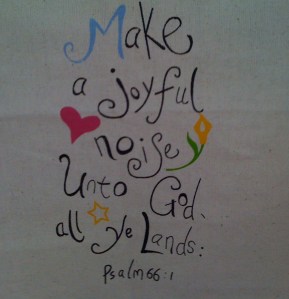 Make
a joyful
noise
Unto God,
all ye Lands:
Psalm 66:1